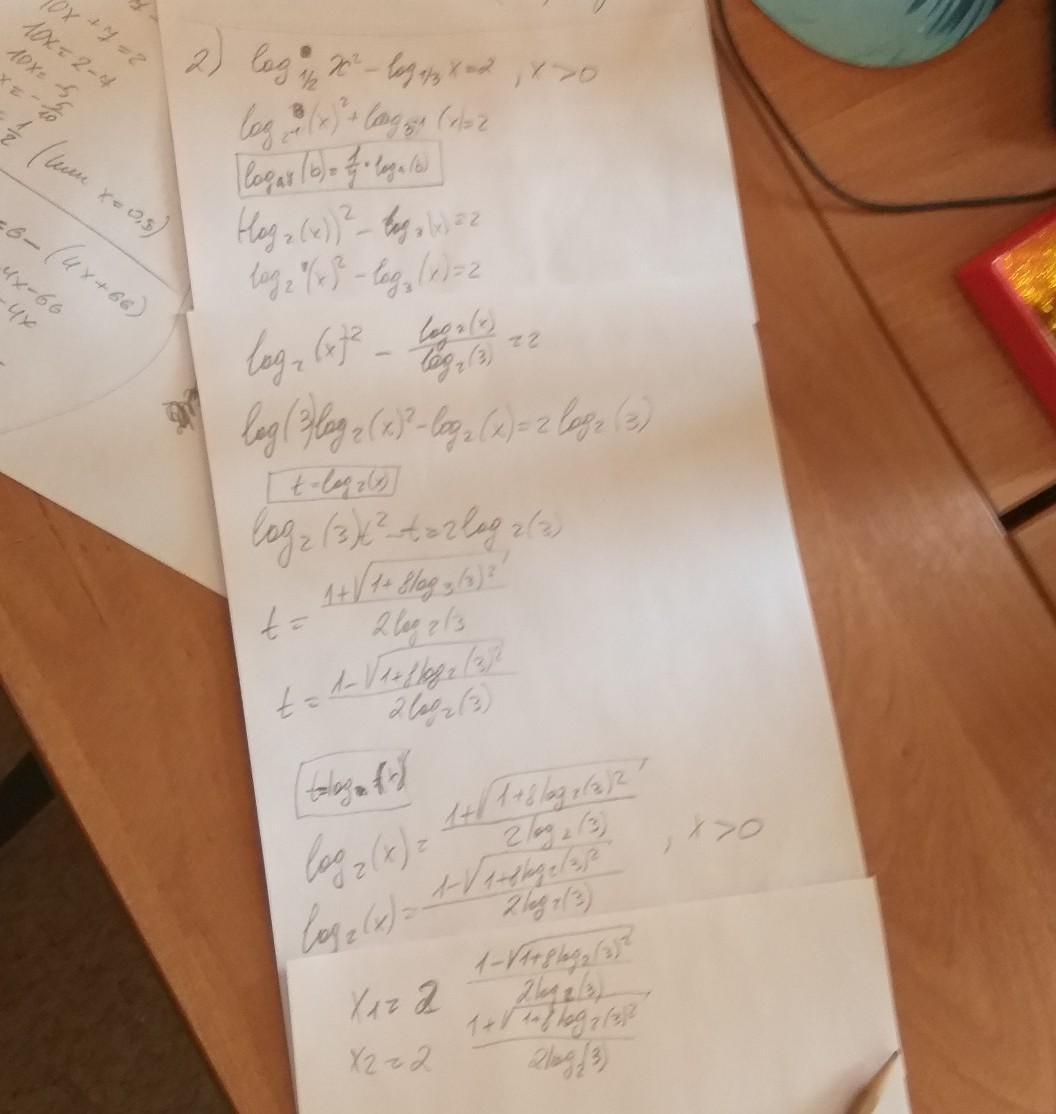 10x + 7 = 2
10x = 2 - 7
10x = -5
(или x = 0,5)
(4x + 66)
4x - 66
- 4x
2) log 1/2 x² - log 1/3 x = 2 , x > 0
log 2⁻¹ (x)² + log 3⁻¹ (x) = 2
(-log₂(x))² - log₃(x) = 2
log₂ (x)² - log₃ (x) = 2
log₂ (x)² - log₂(x)/log₂(3) = 2
log(3)log₂(x)² - log₂(x) = 2 log₂(3)
t = log₂(x)
log₂(3)t² - t = 2 log₂(3)
t = (1+√(1+8log₃(3)²))/(2log₂(3
t = (1-√(1+8log₂(3)²))/(2log₂(3))
log₂(x) = (1+√(1+8log₂(3)²))/(2log₂(3))
, x > 0
log₂(x) = (1-√(1+8log₂(3)²))/(2log₂(3))
x₁ = 2 (1-√(1+8log₂(3)²))/(2log₂(3))
x₂ = 2 (1+√(1+8log₂(3)²))/(2log₂(3))